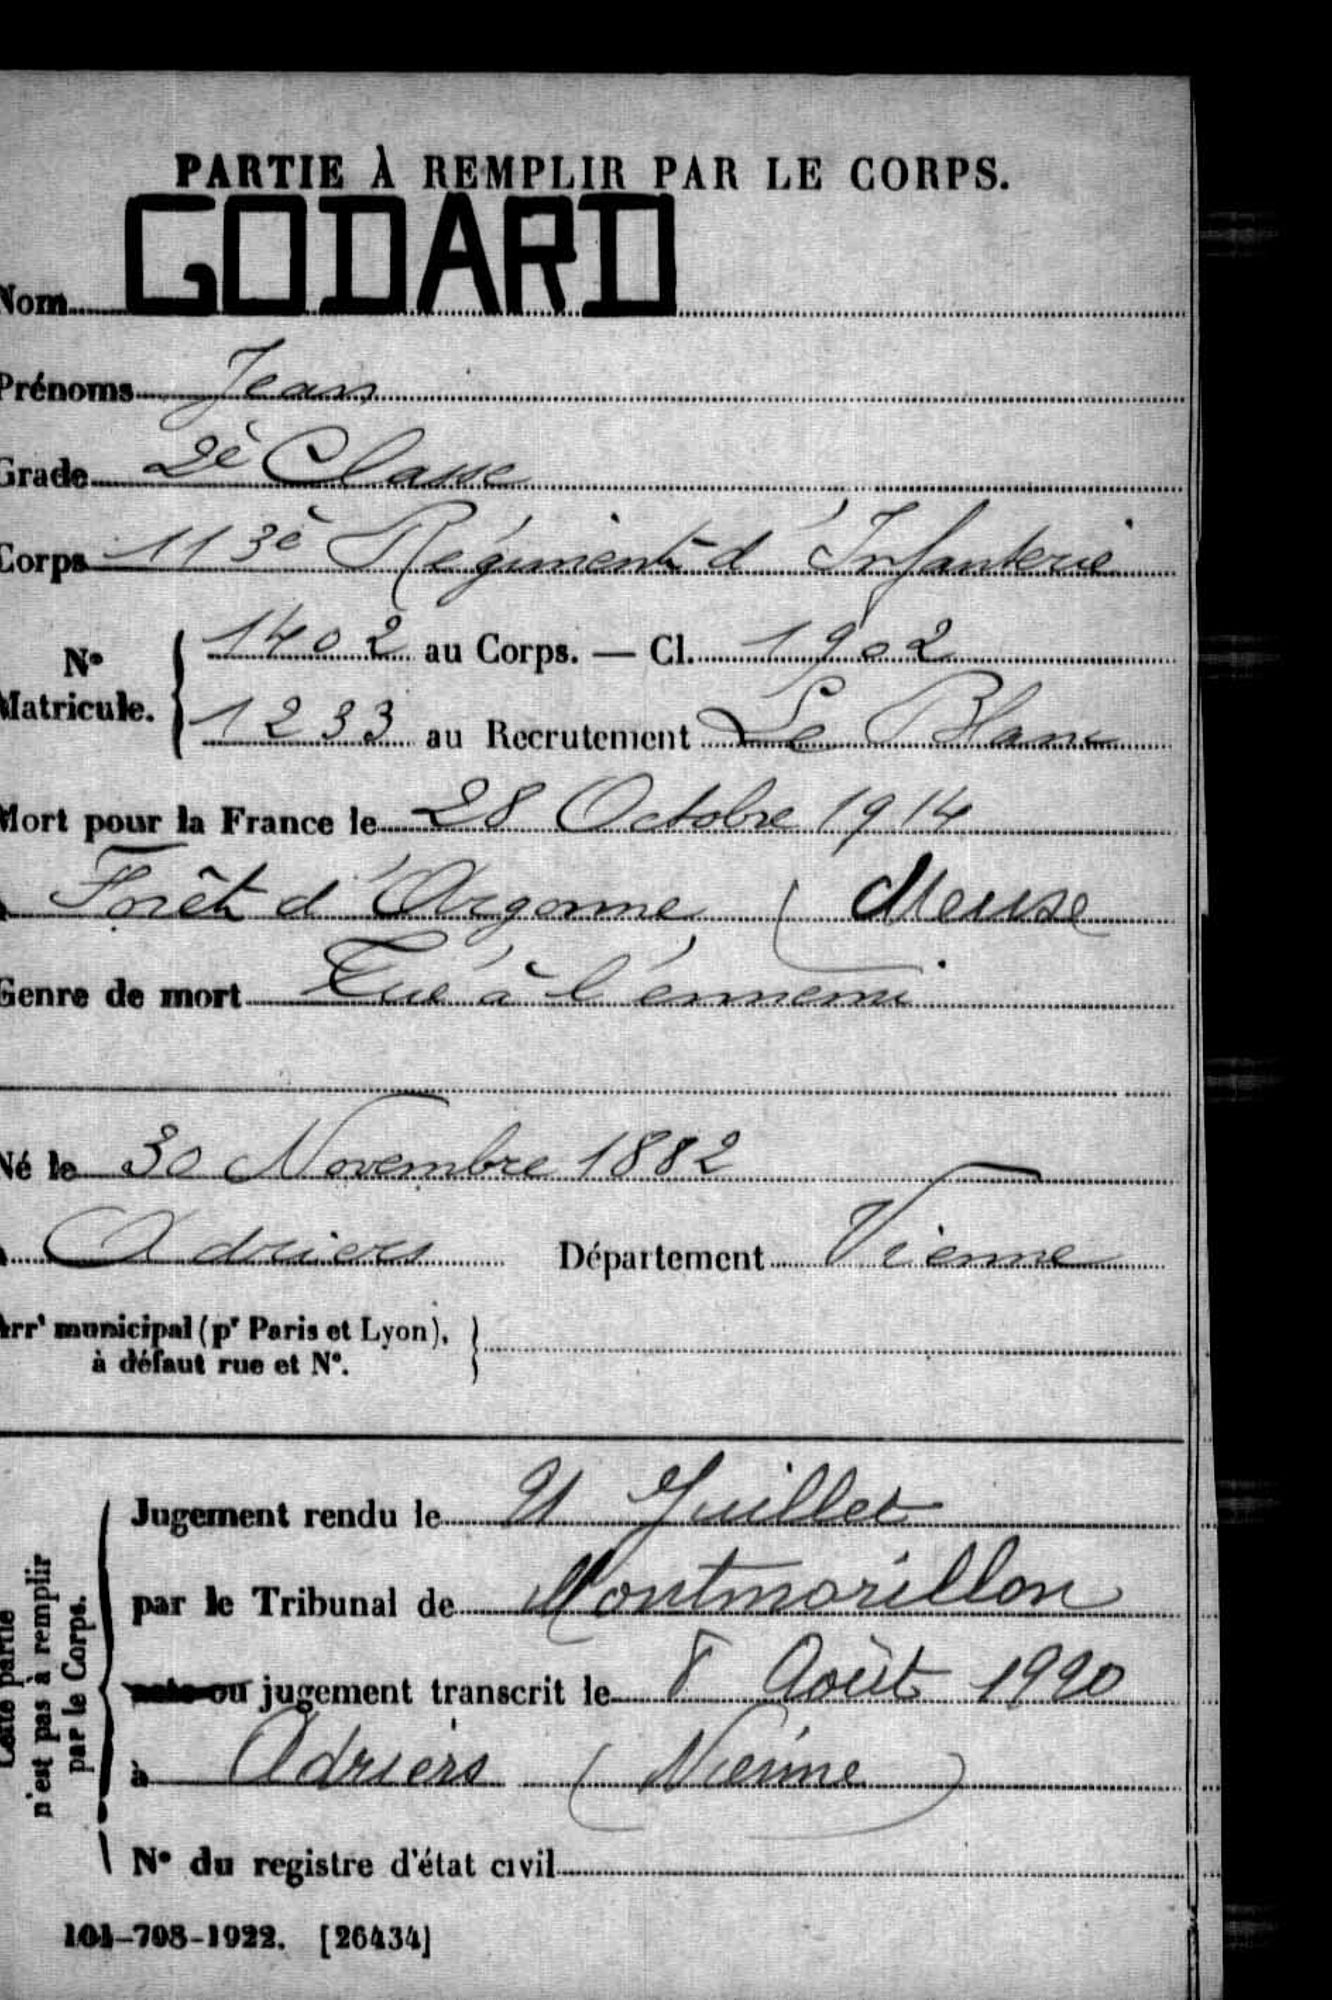 PARTIE À REMPLIR PAR LE CORPS.
Nom GODARD
Prénoms Jean
Grade 2è Classe
Corps 113è Régiment d'Infanterie
N° Matricule. { 1402 au Corps. — Cl. 1902
1233 au Recrutement Le Blanc
Mort pour la France le 28 Octobre 1914
à Forêt d'Argonne ( Meuse
Genre de mort Tué à l'ennemi
Né le 30 Novembre 1882
à Adriers Département Vienne
Arrt municipal (pr Paris et Lyon), }
à défaut rue et N°.
Cette partie
n'est pas à remplir
par le Corps.
Jugement rendu le 21 Juillet
par le Tribunal de Montmorillon
acte ou jugement transcrit le 8 Août 1920
à Adriers (Vienne)
N° du registre d'état civil
101-708-1922. [26434]